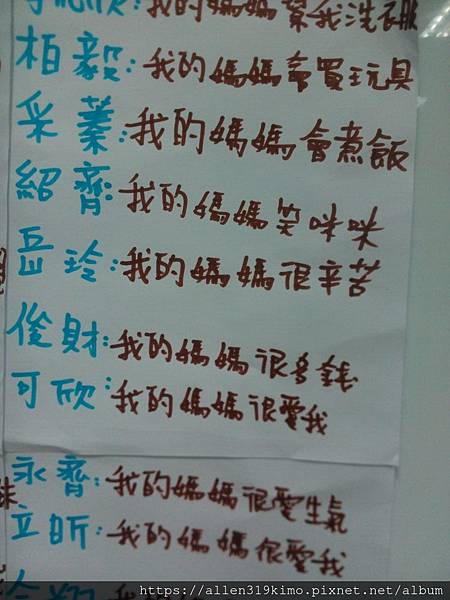 欣:我的媽媽幫我洗衣服
柏毅:我的媽媽會買玩具
采蓁:我的媽媽會煮飯
紹齊:我的媽媽笑咪咪
岳玲:我的媽媽很辛苦
俊財:我的媽媽很多錢
可欣:我的媽媽很愛我
永齊:我的媽媽很愛生氣
立昕:我的媽媽很愛我
https://allen319kimo.pixnet.net/album